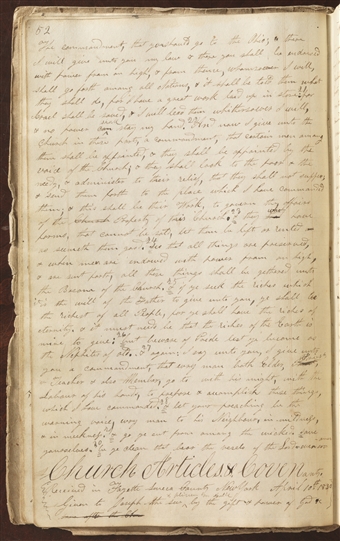 82
the commandment, that ye should go to the Ohio; & there
I will give unto you my law & there you shall be endowed
with power from on high, & from thence, whomsoever I will,
shall go forth among all Nations, & it shall be told them what
they shall do, for I have a great work laid up in store for
Israel shall be saved, & I will lead them whithersoever I will,
& no power shall stay my hand. & now I give unto the
Church in these parts, a commandment, that certain men among
them shall be appointed, & they shall be appointed by the
voice of the Church; & they shall look to the poor & the
needy, & administer to their relief, that they shall not suffer,
& send them forth to the place which I have commanded
them; & this shall be their work, to govern the affairs
of the Church Property of this Church, & they have
farms, that cannot be sold, let them be left or rented as
seemeth them good. See that all things are preserved,
& when men are endowed with power from on high,
& are sent forth, all these things shall be gathered unto
the Bosome of the Church. & if ye seek the riches which
is the will of the Father to give unto you, ye shall be
the richest of all People, for ye shall have the riches of
eternity. & it must needs be that the riches of the Earth is
mine to give. but beware of Pride lest ye become as
the Nephites of old. & again I say unto you, I give unto
you a commandment, that every man both Elder,
& Teacher & also Member, go to with his might, with the
labour of his hands, to prepare & accomplish these things,
which I have commanded. & let your preaching be the
warning voice, every man to his Neighbour, in mildness,
& in meekness. & go ye out from among the wicked. save
yourselves. be ye clean that bear the vessels of the Lord
Church Articles & Coven
Received in Fayette Seneca County New York April 10th 1830
Given to Joseph the seer by the gift & power of God